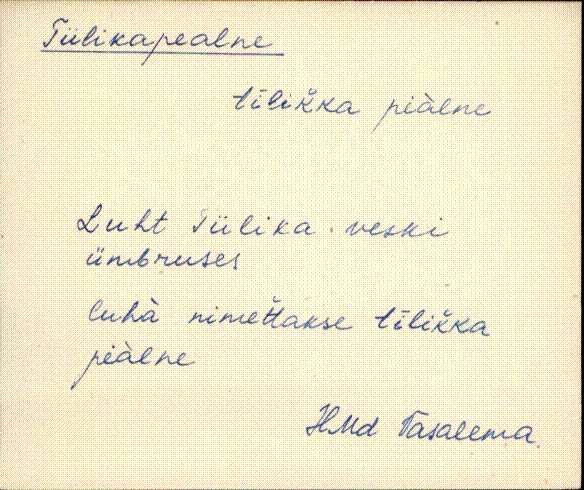 Tülikapealne
tīlikka pièlne
Luht Tülika veski
ümbruses
luhà nimettakse tīlikka
pièlne
HMd Vasalemma